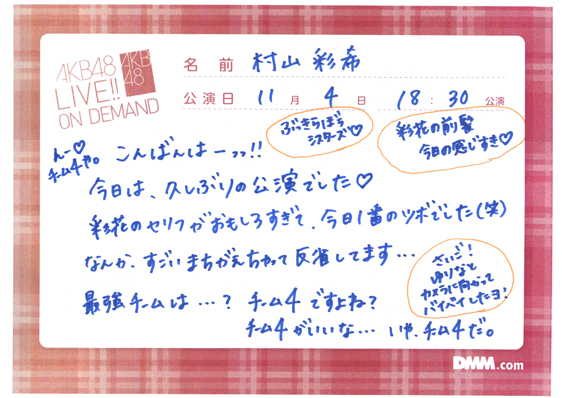 AKB48
LIVE!!
ON DEMAND
AKB
48
名前 村山 彩希
公演日 11月 4日 18:30 公演
ぶっきらぼう
シスターズ♡
彩花の前髪
今日の感じすき♡
んー♡
チーム4や。
こんばんはーッッ!!
今日は、久しぶりの公演でした♡
彩花のセリフがおもしろすぎて、今日1番のツボでした(笑)
なんか、すごいまちがえちゃって反省してます…
さいご!
ゆりなと
カメラに向かって
バイバイしたヨ!
最強チームは…? チーム4ですよね?
チーム4がいいな… いや、チーム4だ。
DMM.com